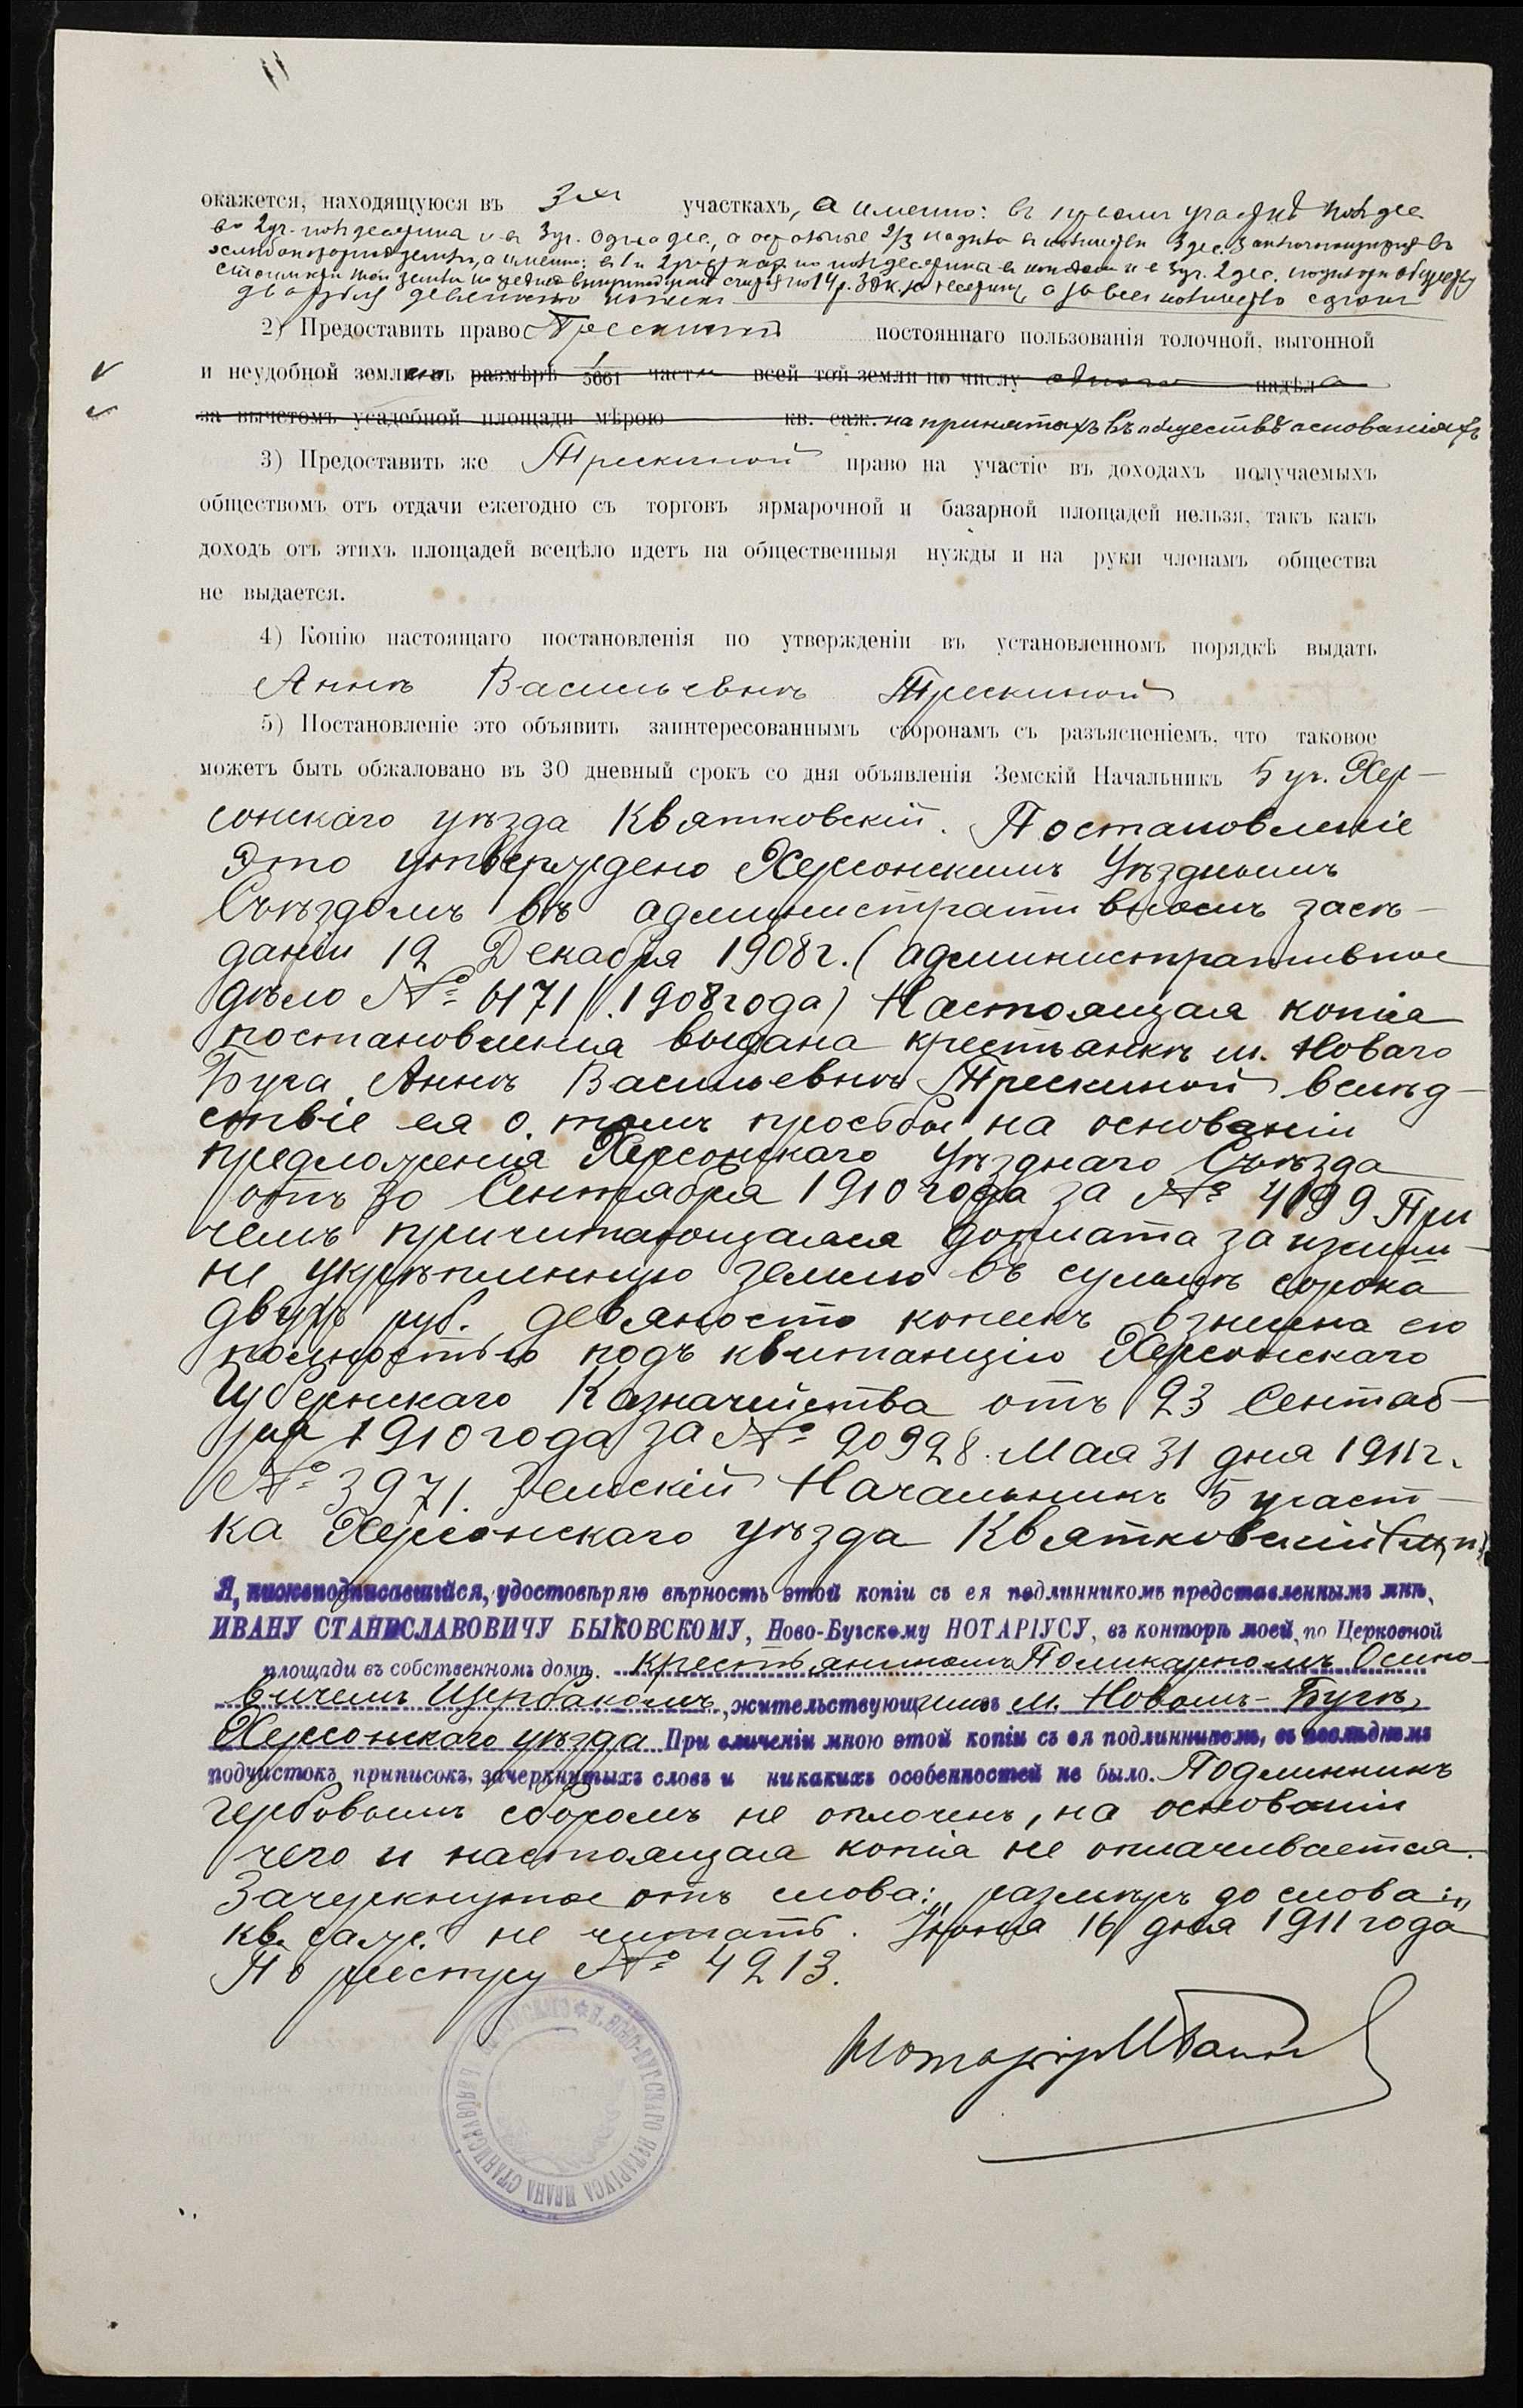 окажется, находящуюся въ 3хъ участкахъ, а именно: въ первомъ участкѣ полъ дес.
во 2 уч. полъ десятина и въ 3 уч. одна дес., а остальные 2/3 надѣла въ количествѣ 3 дес.
земли, а именно: въ 1 и 2 участкахъ по полъ десятина въ каждомъ и въ 3 уч. 2 дес.
стоимость той земли по 14 р. 30 к. за десятину, а за все количество сорокъ
два рубля девяносто копѣекъ
2) Предоставить право Трескиной постояннаго пользованія толочной, выгонной
и неудобной землею въ размѣрѣ 1/5661 части всей той земли по числу одного надѣла
за вычетомъ усадебной площади мѣрою кв. саж. на принятыхъ въ обществѣ основаніяхъ
3) Предоставить же Трескиной право на участіе въ доходахъ получаемыхъ
обществомъ отъ отдачи ежегодно съ торговъ ярмарочной и базарной площадей нельзя, такъ какъ
доходъ отъ этихъ площадей всецѣло идетъ на общественныя нужды и на руки членамъ общества
не выдается.
4) Копію настоящаго постановленія по утвержденіи въ установленномъ порядкѣ выдать
Аннѣ Васильевнѣ Трескиной
5) Постановленіе это объявить заинтересованнымъ сторонамъ съ разъясненіемъ, что таковое
можетъ быть обжаловано въ 30 дневный срокъ со дня объявленія Земскій Начальникъ 5 уч. Хер-
сонскаго уѣзда Квятковскій. Постановленіе
это утверждено Херсонскимъ Уѣзднымъ
Съѣздомъ въ административномъ засѣ-
даніи 12 Декабря 1908 г. (административное
дѣло № 4171 1908 года) Настоящая копія
постановленія выдана крестьянкѣ м. Новаго
Буга Аннѣ Васильевнѣ Трескиной вслѣд-
ствіе ея о томъ просьбы на основаніи
предложенія Херсонскаго Уѣзднаго Съѣзда
отъ 30 Сентября 1910 года за № 4199 При
чемъ причитающаяся доплата за излиш-
не укрѣпленную землю въ суммѣ сорока
двухъ руб. девяносто копѣекъ взнесена ею
полностью подъ квитанцію Херсонскаго
Губернскаго Казначейства отъ 23 Сентяб-
ря 1910 года за № 20928. Мая 31 дня 1911 г.
№ 3971. Земскій Начальникъ 5 участ-
ка Херсонскаго уѣзда Квятковскій (м, п.)
Я, нижеподписавшійся, удостовѣряю вѣрность этой копіи съ ея подлинникомъ представленнымъ мнѣ,
ИВАНУ СТАНИСЛАВОВИЧУ БЫКОВСКОМУ, Ново-Бугскому НОТАРІУСУ, въ конторѣ моей, по Церковной
площади въ собственномъ домѣ. Крестьяниномъ Поликарпомъ Осипо-
вичемъ Щербакомъ, жительствующимъ м. Новомъ-Бугѣ,
Херсонскаго уѣзда При сличеніи мною этой копіи съ ея подлинникомъ, въ послѣднемъ
подчистокъ, приписокъ, зачеркнутыхъ словъ и никакихъ особенностей не было. Подлинникъ
гербовымъ сборомъ не оплоченъ, на основаніи
чего и настоящая копія не оплачивается.
Зачеркнутое отъ слова: „размѣрѣ до слова: „
кв. саж. не читать. Іюня 16 дня 1911 года
По реестру № 4213.
Нотаріусъ
НОВО-БУГСКАГО НОТАРІУСА ИВАНА СТАНИСЛАВОВИЧА